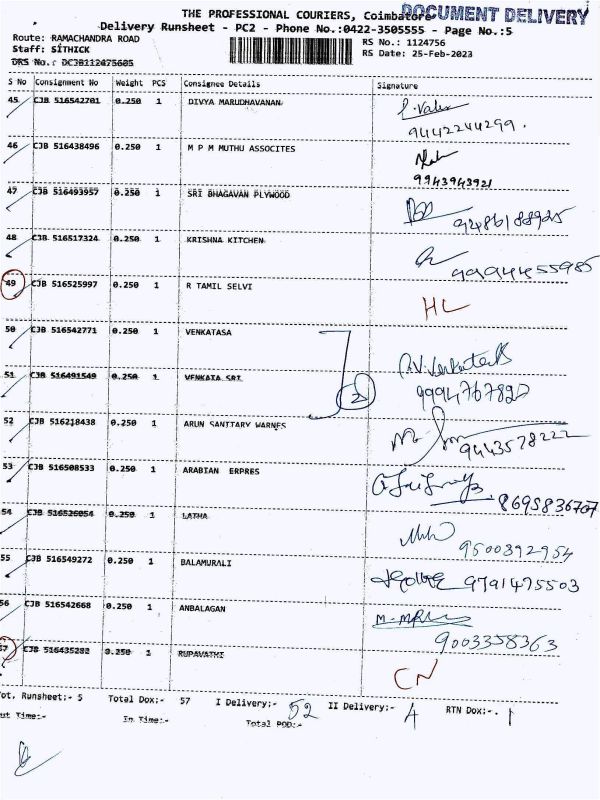 THE PROFESSIONAL COURIERS, Coimbatore
DOCUMENT DELIVERY
Delivery Runsheet - PC2 - Phone No.:0422-3505555 - Page No.:5
Route: RAMACHANDRA ROAD
RS No.: 1124756
Staff: SITHICK
RS Date: 25-Feb-2023
DRS No.: DCJB112475605
S No Consignment No Weight PCS Consignee Details Signature
45 CJB 516542701 0.250 1 DIVYA MARUDHAVANAN
9442244299.
46 CJB 516438496 0.250 1 M P M MUTHU ASSOCITES
9943943921
47 CJB 516493957 0.250 1 SRI BHAGAVAN PLYWOOD
9486188925
48 CJB 516517324 0.250 1 KRISHNA KITCHEN
9994455985
49 CJB 516525997 0.250 1 R TAMIL SELVI
HL
50 CJB 516542771 0.250 1 VENKATASA
51 CJB 516491549 0.250 1 VENKATA SRI
2
9994767820
52 CJB 516218438 0.250 1 ARUN SANITARY WARNES
9443578222
53 CJB 516508533 0.250 1 ARABIAN ERPRES
8695836707
54 CJB 516526054 0.250 1 LATHA
9500392954
55 CJB 516549272 0.250 1 BALAMURALI
9791475503
56 CJB 516542668 0.250 1 ANBALAGAN
9003358363
57 CJB 516435282 0.250 1 RUPAVATHI
CN
Tot. Runsheet:- 5 Total Dox:- 57 I Delivery:- 52 II Delivery:- 4 RTN Dox:-. 1
Out Time:- In Time:- Total POD:-